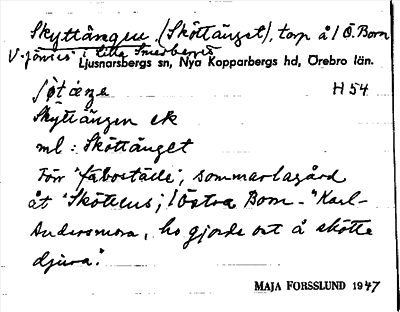 Skyttängen (Sköttänget), torp å 1 Ö. Born
V. från i Lilla
Ljusnarsbergs sn, Nya Kopparbergs hd, Örebro län.
H 54
Skyttängen ek
ml: Sköttänget
Förr "fäboställe", sommarlagård
åt "Sköttens", i Östra Born - "Karl-
Andersmora, ho gjorde ont å skötte
djura".
MAJA FORSSLUND 1947